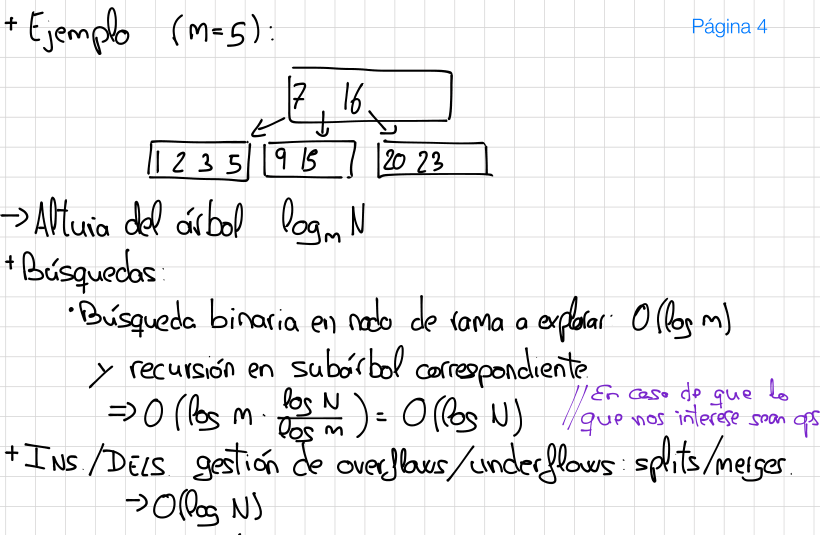 + Ejemplo (m=5):
Página 4
7 16
1 2 3 5 9 15 20 23
→ Altura del árbol log_m N
+ Búsquedas:
· Búsqueda binaria en nodo de rama a explorar: O(log m)
y recursión en subárbol correspondiente
⇒ O(log m · log N / log m) = O(log N) //En caso de que lo
que nos interese sean ops
+ INS./DELS. gestión de overflows/underflows: splits/merges.
→ O(log N)